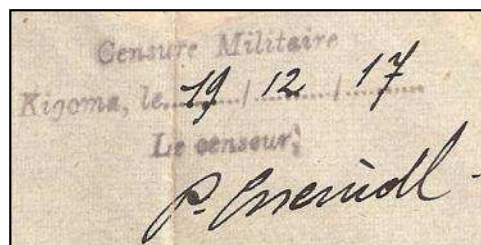 Censure Militaire
Kigoma, le 19 / 12 / 17
Le censeur,
P.